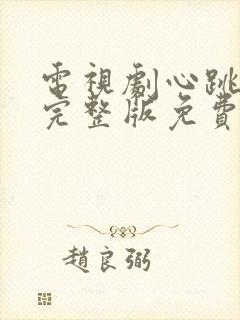 電視劇心跳
完整版免費
趙良弼